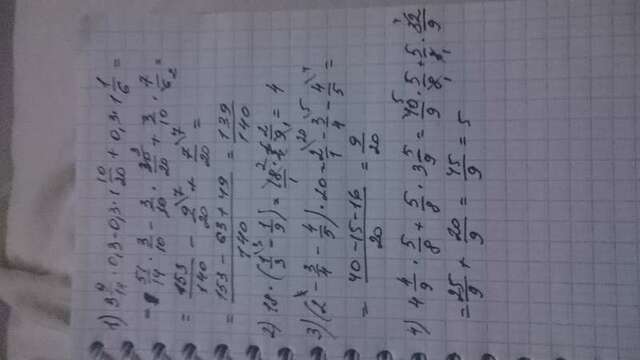 1) 3 9/14 · 0,3 - 0,3 · 1 10/20 + 0,3 · 1 1/6 =
= 51/14 · 3/10 - 3/10 · 30/20 + 3/10 · 7/6 =
= 153/140 - 9/20 + 7/20 =
= (153 - 63 + 49)/140 = 139/140
2) 18 · (1/3 - 1/9) = 18/1 · 2/9 = 4
3) (2 - 3/4 - 4/5) · 20 = 2/1 - 3/4 - 4/5 =
= (40 - 15 - 16)/20 = 9/20
4) 4 4/9 · 5/8 + 5/8 · 3 5/9 = 40/9 · 5/8 + 5/8 · 32/9
= 25/9 + 20/9 = 45/9 = 5